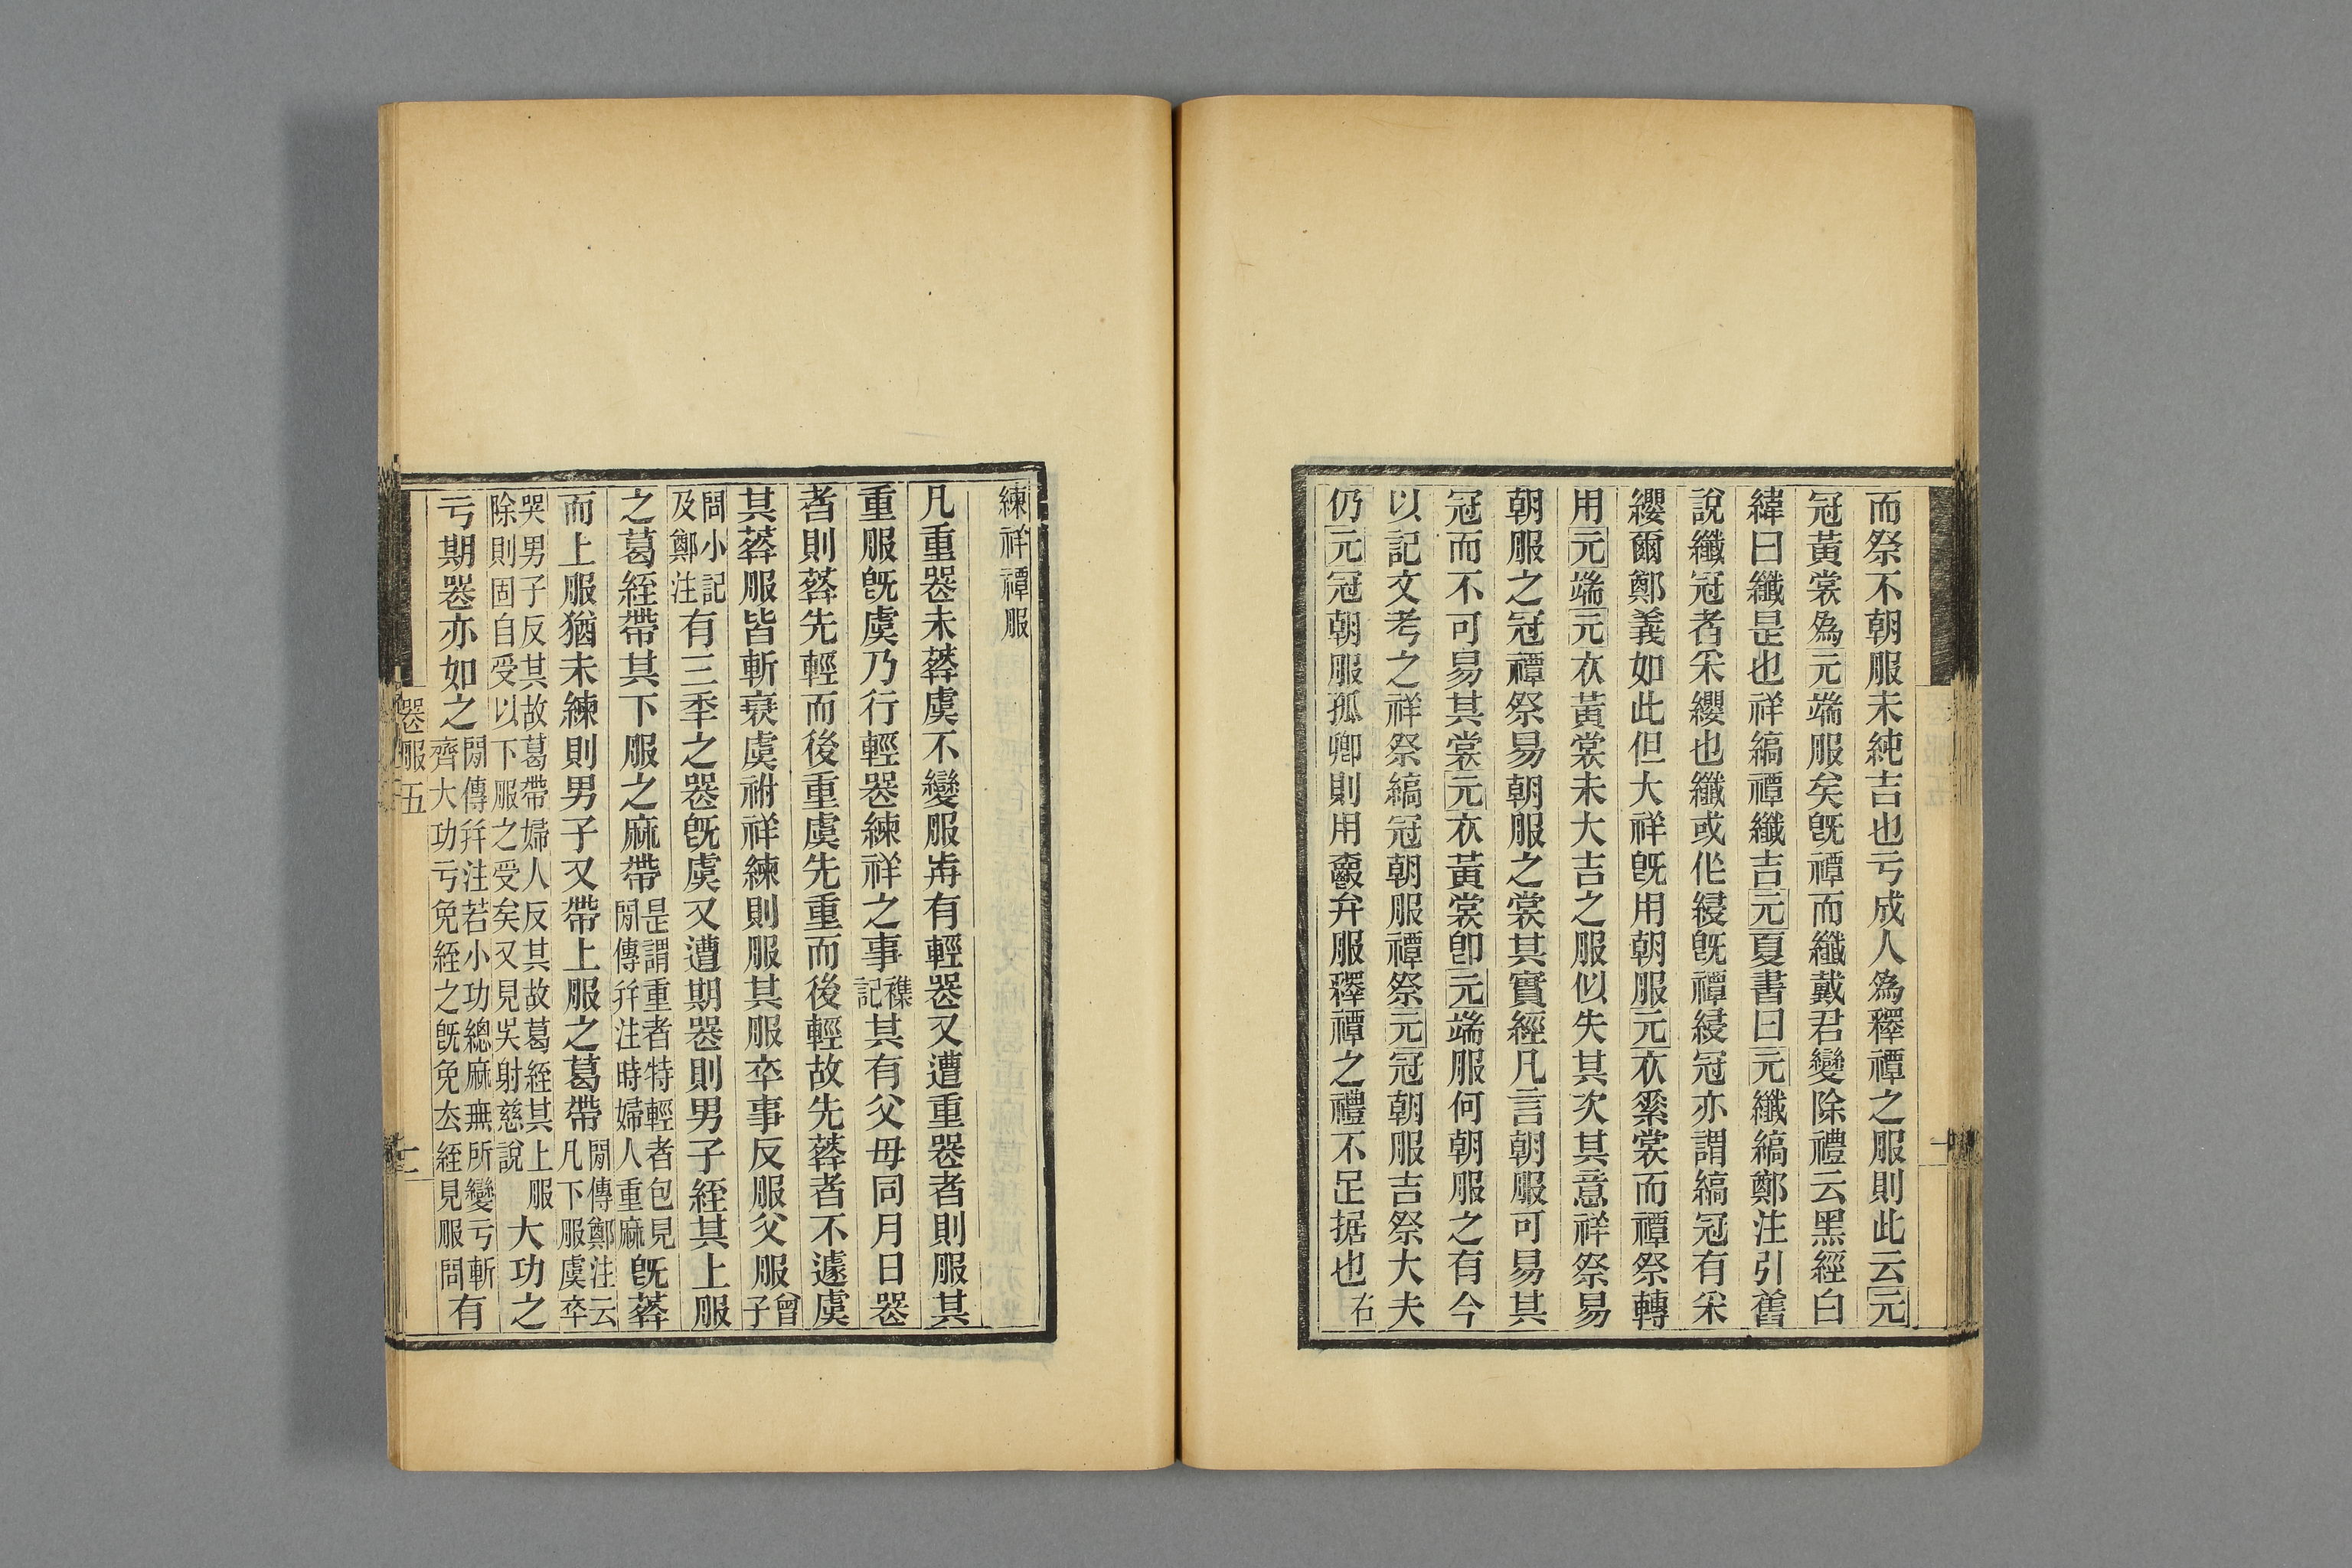 而祭不朝服未純吉也亏成人爲釋禫之服則此云元
冠黃裳爲元端服矣旣禫而纖戴君變除禮云黑經白
緯曰纖是也祥縞禫纖吉元夏書曰元纖縞鄭注引舊
說纖冠者采纓也纖或作綅旣禫綅冠亦謂縞冠有采
纓爾鄭義如此但大祥旣用朝服元衣素裳而禫祭轉
用元端元衣黃裳未大吉之服似失其次其意祥祭易
朝服之冠禫祭易朝服之裳其實經凡言朝服可易其
冠而不可易其裳元衣黃裳卽元端服何朝服之有今
以記文考之祥祭縞冠朝服禫祭元冠朝服吉祭大夫
仍元冠朝服孤卿則用爵弁服釋禫之禮不足据也
右
練祥禫服
凡重喪未葬虞不變服歬有輕喪又遭重喪者則服其
重服旣虞乃行輕喪練祥之事
襍
記
其有父母同月日喪
者則葬先輕而後重虞先重而後輕故先葬者不遽虞
其葬服皆斬衰虞祔祥練則服其服卒事反服父服
曾子
問小記
及鄭注
有三秊之喪旣虞又遭期喪則男子絰其上服
之葛絰帶其下服之麻帶
是謂重者特輕者包見
閒傳幷注時婦人重麻
旣葬
而上服猶未練則男子又帶上服之葛帶
閒傳鄭注云
凡下服虞卒
哭男子反其故葛帶婦人反其故葛絰其上服
除則固自受以下服之受矣又見吳射慈說
大功之
亏期喪亦如之
閒傳幷注若小功緦麻無所變亏斬
齊大功亏免絰之旣免去絰見服問
有
喪服五